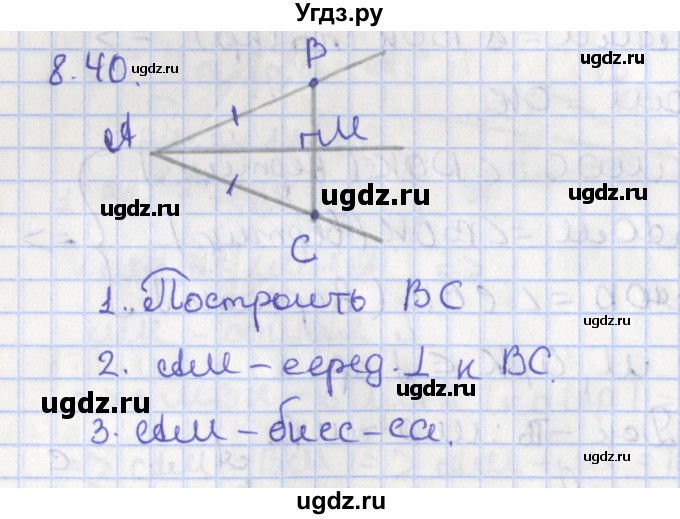 Угдз.ру
8.40.
ugdz.ru
B
A
M
ugdz.ru
ugdz.ru
ugdz.ru
C
1. Построить BC
ugdz.ru
2. AM – серед. ⊥ к BC.
ugdz.ru
ugdz.ru
3. AM – бисс-са.
ugdz.ru
ugdz.ru